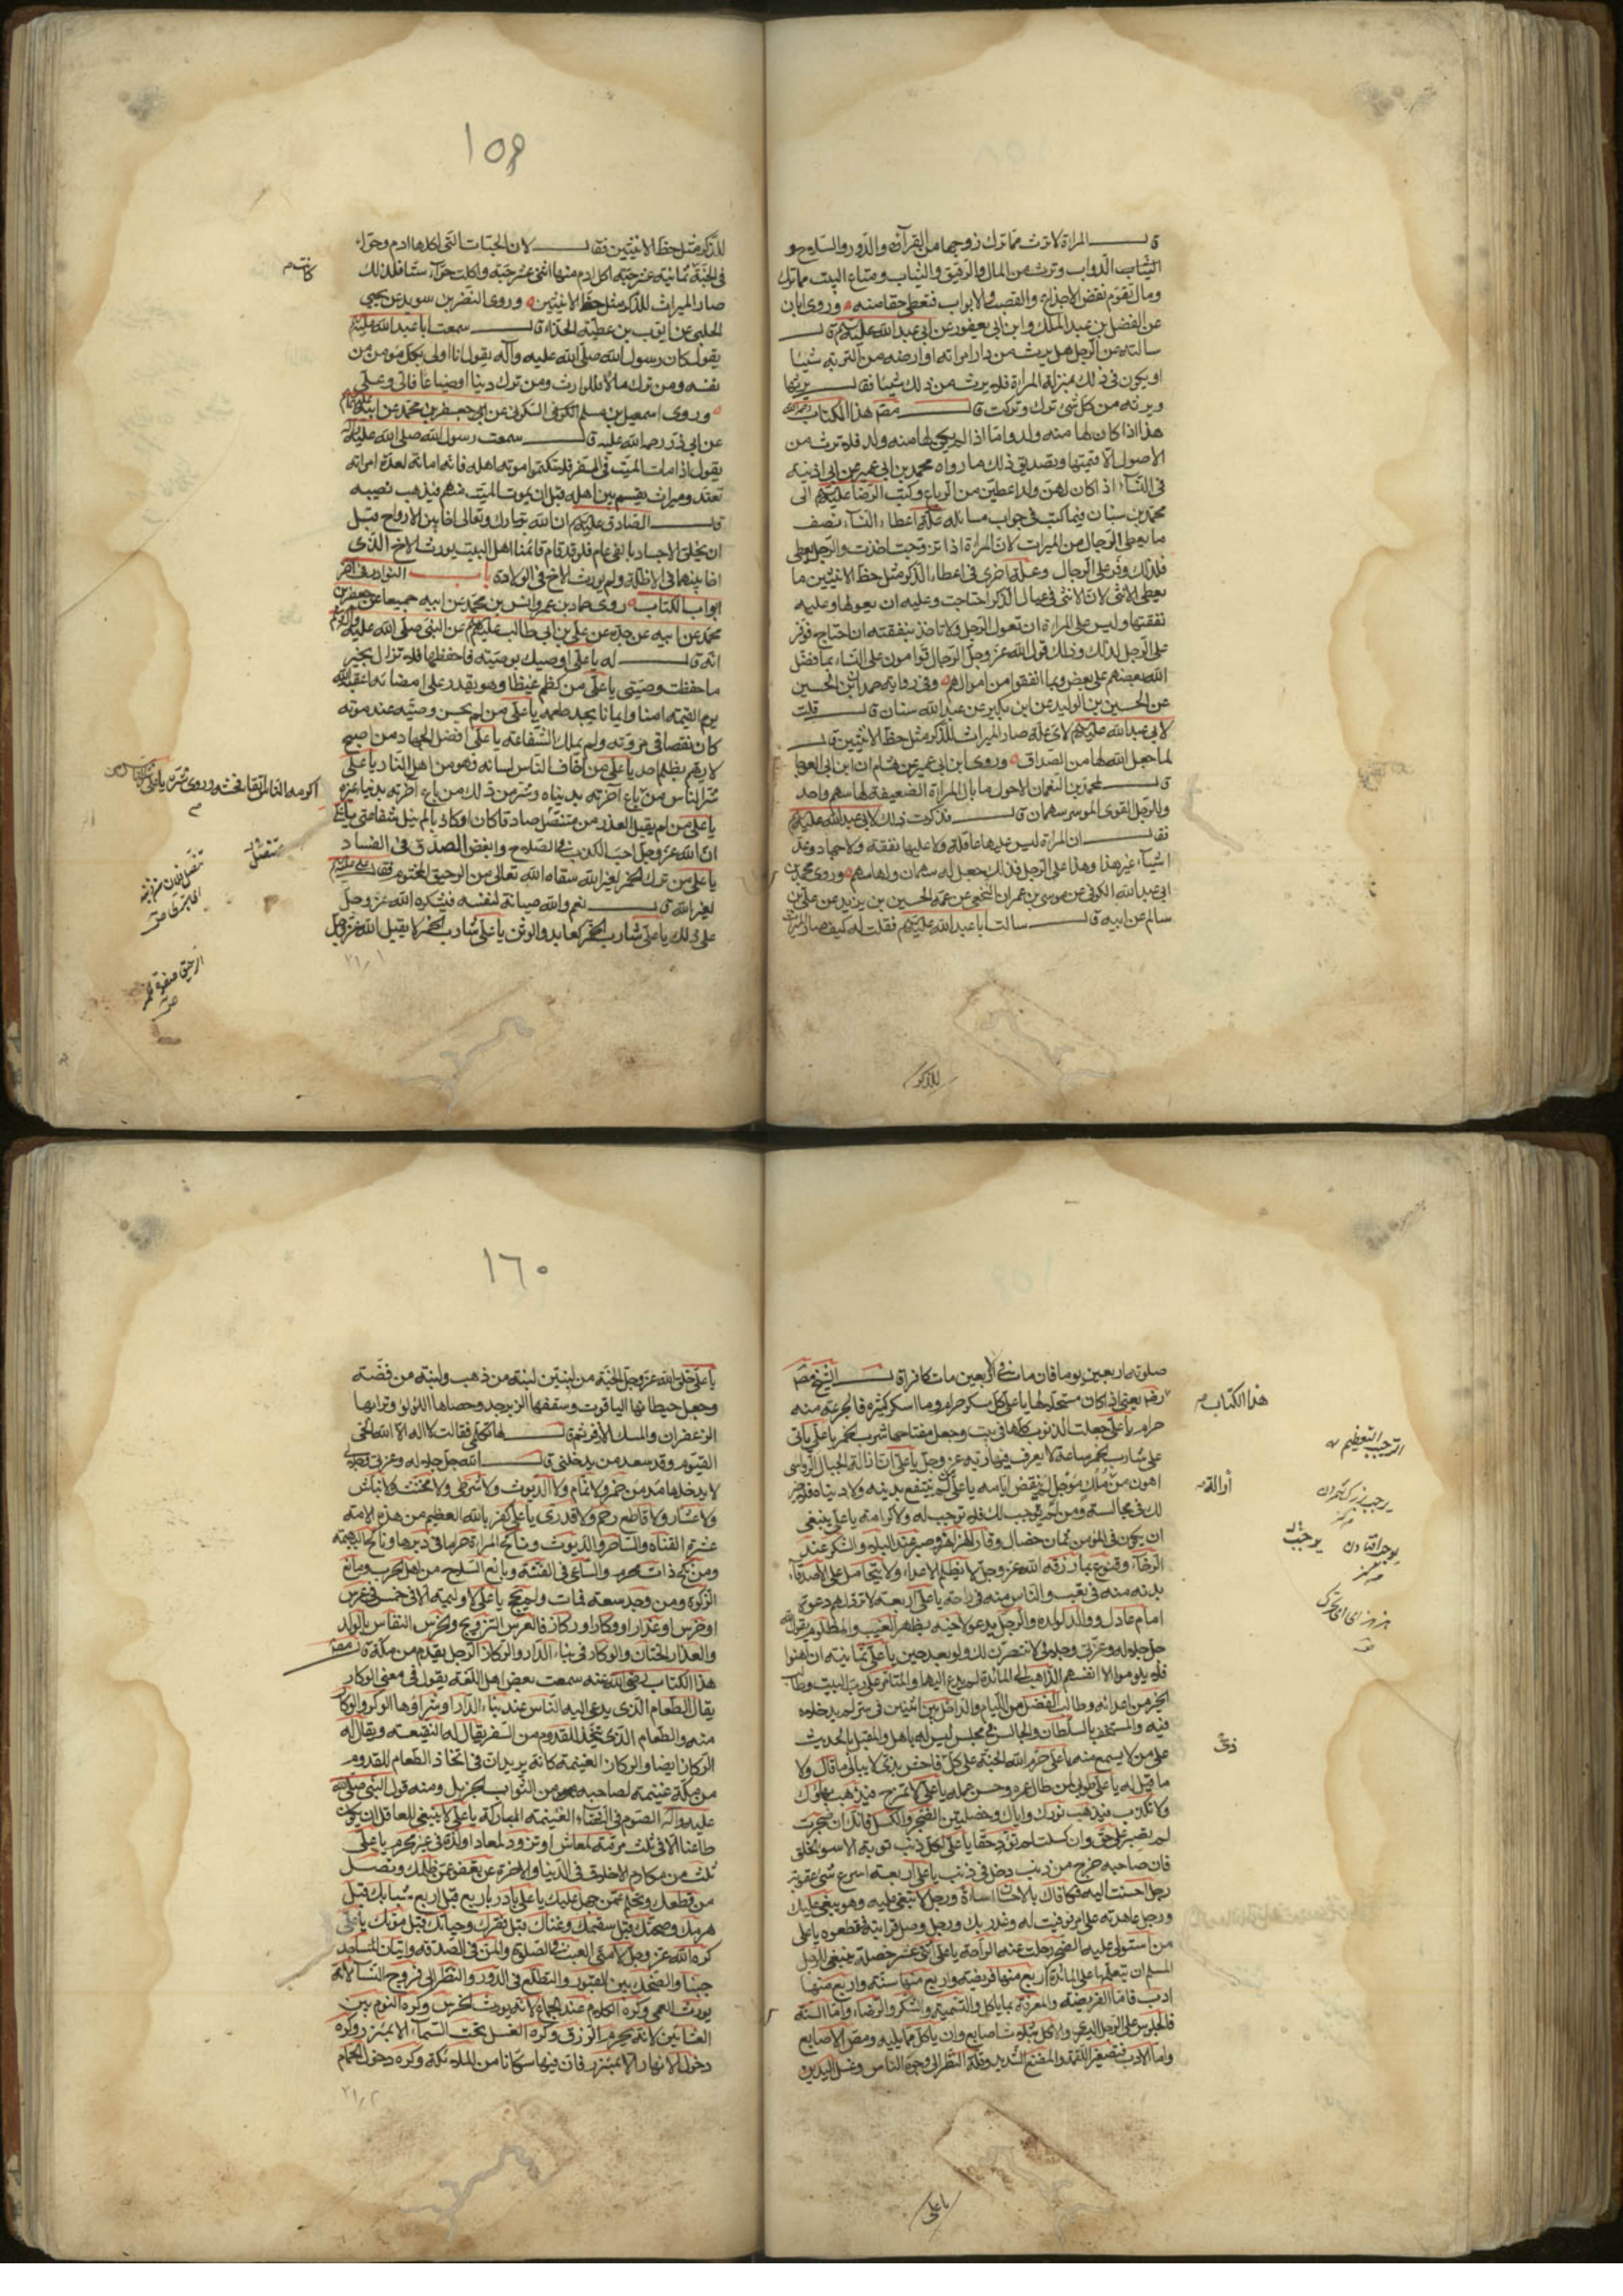 قال المراة لا ترث مما ترك زوجها من القرى والدور والسلاح و
الدواب وترث من المال والرقيق والثياب ومتاع البيت مما ترك
ويقوم نقض الاجذاع والقصب والابواب فتعطى حقها منه وروى ابان
عن الفضل بن عبد الملك وابن ابي يعفور عن ابي عبد الله عليه السلم قال
سالته عن الرجل هل يرث من دار امراته او ارضه من التربة شيئا
او يكون في ذلك بمنزلة المراة فلا يرث من ذلك شيئا فقال يرثها
ويرثه من كل شئ ترك وتركت قال مصنف هذا الكتاب
هذا اذا كان لها منه ولد واما اذا لم يكن لها منه ولد فلا ترث من
الاصول الا قيمتها وتصديق ذلك ما رواه محمد بن ابي عمير عن ابن اذينة
في النساء اذا كان لهن ولد اعطين من الرباع وكتب الرضا عليه السلم الى
محمد بن سنان فيما كتب في جواب مسائله علة اعطاء النساء نصف
ما يعطى الرجال من الميراث لان المراة اذا تزوجت اخذت والرجل يعطى
فلذلك وفر على الرجال وعلة اخرى في اعطاء الذكر مثل حظ الانثيين ما
يعطى الانثى لان الانثى في عيال الذكر ان احتاجت وعليه ان يعولها وعليه
نفقتها وليس على المراة ان تعول الرجل ولا تاخذ بنفقته ان احتاج فوفر
على الرجل لذلك وذلك قول الله عز وجل الرجال قوامون على النساء بما فضل
الله بعضهم على بعض وبما انفقوا من اموالهم وفي رواية حمدان بن الحسين
عن الحسين بن الوليد عن ابن بكير عن عبد الله سنان قال قلت
لابي عبد الله عليه السلم لاي علة صار الميراث للذكر مثل حظ الانثيين قال
لما جعل الله لها من الصداق وروى ابن ابي عمير عن هشام ان ابن ابي العوجا
قال لمحمد بن النعمان الاحول ما بال المراة الضعيفة لها سهم واحد
وللرجل القوى الموسر سهمان قال فذكرت ذلك لابي عبد الله عليه السلم
فقال ان المراة ليس عليها عاقلة ولا عليها نفقة ولا جهاد وعد
اشياء غير هذا وهذا على الرجل فلذلك جعل له سهمان ولها سهم وروى محمد بن
ابي عبد الله الكوفي عن موسى بن عمران النخعي عن عمه الحسين بن يزيد عن علي بن
سالم عن ابيه قال سالت ابا عبد الله عليه السلم فقلت له كيف صار الميراث
للذكر
١٥٩
للذكر مثل حظ الانثيين فقال لان الحبات التي اكلها ادم وحواء
في الجنة ثمانية عشر حبة اكل ادم منها اثنى عشر حبة واكلت حواء ستا فلذلك
كانت
صار الميراث للذكر مثل حظ الانثيين وروى النضر بن سويد عن يحيى
الحلبي عن ايوب بن عطية الحذاء قال سمعت ابا عبد الله عليه السلم
يقول كان رسول الله صلى الله عليه وآله يقول انا اولى بكل مؤمن من
نفسه ومن ترك مالا فللوارث ومن ترك دينا او ضياعا فالى وعلى
وروى اسمعيل بن مسلم الكوفي السكوني عن ابي جعفر بن محمد عن ابيه
عن ابي ذر رحمه الله عليه قال سمعت رسول الله صلى الله عليه وآله
يقول اذا مات الميت في السفر فلا تكتموا موته اهله فانه امانة لعدة امراته
تعتد وميراث يقسم بين اهله قبل ان يموت الميت منهم فيذهب نصيبه
قال الصادق عليه السلم ان الله تبارك وتعالى اخا بين الارواح قبل
ان يخلق الاجساد بالفي عام فلو قد قام قائمنا اهل البيت يورث الاخ الذي
اخا بينهما في الاظلة ولم يورث الاخ في الولادة باب النوادر في اخر
ابواب الكتاب روى حماد بن عمرو وانس بن محمد عن ابيه جميعا عن جعفر بن
محمد عن ابيه عن جده عن علي بن ابي طالب عليهم السلم عن النبي صلى الله عليه وآله
انه قال له يا علي اوصيك بوصية فاحفظها فلا تزال بخير
ما حفظت وصيتي يا علي من كظم غيظا وهو يقدر على امضائه اعقبه الله
يوم القيمة امنا وايمانا يجد طعمه يا علي من لم يحسن وصيته عند موته
كان نقصا في مروته ولم يملك الشفاعة يا علي افضل الجهاد من اصبح
لا يهم بظلم احد يا علي من خاف الناس لسانه فهو من اهل النار يا علي
شر الناس من باع آخرته بدنياه وشر من ذلك من باع آخرته بدنيا غيره
يا علي من لم يقبل العذر من متنصل صادقا كان او كاذبا لم ينل شفاعتي يا علي
ان الله عز وجل احب الكذب في الصلاح وابغض الصدق في الفساد
يا علي من ترك الخمر لغير الله سقاه الله تعالى من الرحيق المختوم فقال علي
لغير الله قال نعم والله صيانة لنفسه فيشكره الله عز وجل
على ذلك يا علي شارب الخمر كعابد الوثن يا علي شارب الخمر لا يقبل الله عز وجل
متنصل
صلوته اربعين يوما فان مات في الاربعين مات كافرا قال الشيخ مصنف
هذا الكتاب
رضه يعني اذا كان مستحلا لها يا علي كل مسكر حرام وما اسكر كثيره فالجرعة منه
حرام يا علي جعلت الذنوب كلها في بيت وجعل مفتاحها شرب الخمر يا علي ياتي
على شارب الخمر ساعة لا يعرف فيها ربه عز وجل يا علي ان ازالة الجبال الرواسي
اهون من ملك مؤجل لم ينقض ايامه يا علي من لم ينتفع بدينه ولا دنياه فلا خير
لك في مجالسته ومن لم يوجب لك فلا توجب له ولا كرامة يا علي ينبغي
ان يكون في المؤمن ثمان خصال وقار عند الهزاهز وصبر عند البلاء وشكر عند
الرخاء وقنوع بما رزقه الله عز وجل لا يظلم الاعداء ولا يتحامل على الاصدقاء
بدنه منه في تعب والناس منه في راحة يا علي اربعة لا ترد لهم دعوة
امام عادل ووالد لولده والرجل يدعو لاخيه بظهر الغيب والمظلوم يقول الله
جل جلاله وعزتي وجلالي لانتصرن لك ولو بعد حين يا علي ثمانية ان اهينوا
فلا يلوموا الا انفسهم الذاهب الى مائدة لم يدع اليها والمتامر على رب البيت وطالب
الخير من اعدائه وطالب الفضل من اللئام والداخل بين اثنين في سر لم يدخلاه
فيه والمستخف بالسلطان والجالس في مجلس ليس له باهل والمقبل بالحديث
على من لا يسمع منه يا علي حرم الله الجنة على كل فاحش بذي لا يبالي ما قال ولا
ما قيل له يا علي طوبى لمن طال عمره وحسن عمله يا علي لا تمزح فيذهب بهاؤك
ولا تكذب فيذهب نورك واياك وخصلتين الضجر والكسل فانك ان ضجرت
لم تصبر على حق وان كسلت لم تؤد حقا يا علي لكل ذنب توبة الا سوء الخلق
فان صاحبه كلما خرج من ذنب دخل في ذنب يا علي اربعة اسرع شئ عقوبة
رجل احسنت اليه فكافاك بالاحسان اساءة ورجل لا تبغي عليه وهو يبغي عليك
ورجل عاهدته على امر فوفيت له وغدر بك ورجل وصل قرابته فقطعوه يا علي
من استولى عليه الضجر رحلت عنه الراحة يا علي اثنى عشر خصلة ينبغي للرجل
المسلم ان يتعلمها على المائدة اربع منها فريضة واربع منها سنة واربع منها
ادب فاما الفريضة فالمعرفة بما ياكل والتسمية والشكر والرضاء واما السنة
فالجلوس على الرجل اليسرى والاكل بثلاث اصابع وان ياكل مما يليه ومص الاصابع
واما الادب فتصغير اللقمة والمضغ الشديد وقلة النظر الى وجوه الناس وغسل اليدين
يا علي
١٦٠
يا علي خلق الله عز وجل الجنة من لبنتين لبنة من ذهب ولبنة من فضة
وجعل حيطانها الياقوت وسقفها الزبرجد وحصاها اللؤلؤ وترابها
الزعفران والمسك الاذفر ثم قال لها تكلمي فقالت لا اله الا الله الحي
القيوم قد سعد من يدخلني قال الله جل جلاله وعزتي وجلالي
لا يدخلها مدمن خمر ولا نمام ولا الديوث ولا شرطي ولا مخنث ولا نباش
ولا عشار ولا قاطع رحم ولا قدري يا علي كفر بالله العظيم من هذه الامة
عشرة القتات والساحر والديوث وناكح المراة حراما في دبرها وناكح البهيمة
ومن نكح ذات محرم والساعي في الفتنة وبايع السلاح من اهل الحرب ومانع
الزكوة ومن وجد سعة فمات ولم يحج يا علي لا وليمة الا في خمس في عرس
او خرس او عذار او وكار او ركاز فالعرس التزويج والخرس النفاس بالولد
والعذار الختان والوكار في بناء الدار والركاز الرجل يقدم من مكة قال مصنف
هذا الكتاب رضي الله عنه سمعت بعض اهل اللغة يقول في معنى الوكار
يقال للطعام الذي يدعى اليه الناس عند بناء الدار او شراؤها الوكيرة والوكار
منه والطعام الذي يتخذ للقدوم من السفر يقال له النقيعة ويقال له
الركاز ايضا والركاز الغنيمة كانه يريد ان في اتخاذ الطعام للقدوم
من مكة غنيمة لصاحبه من الثواب الجزيل ومنه قول النبي صلى الله
عليه وآله الصوم في الشتاء الغنيمة الباردة يا علي لا ينبغي للعاقل ان يكون
ظاعنا الا في ثلث مرمة لمعاش او تزود لمعاد او لذة في غير محرم يا علي
ثلث من مكارم الاخلاق في الدنيا والاخرة ان تعفو عمن ظلمك وتصل
من قطعك وتحلم عمن جهل عليك يا علي بادر باربع قبل اربع شبابك قبل
هرمك وصحتك قبل سقمك وغناك قبل فقرك وحياتك قبل موتك يا علي
كره الله عز وجل لامتي العبث في الصلوة والمن في الصدقة واتيان المساجد
جنبا والضحك بين القبور والتطلع في الدور والنظر الى فروج النساء لانه
يورث العمى وكره الكلام عند الجماع لانه يورث الخرس وكره النوم بين
العشائين لانه يحرم الرزق وكره الغسل تحت السماء الا بمئزر وكره
دخول الانهار الا بمئزر فان فيها سكانا من الملائكة وكره دخول الحمام